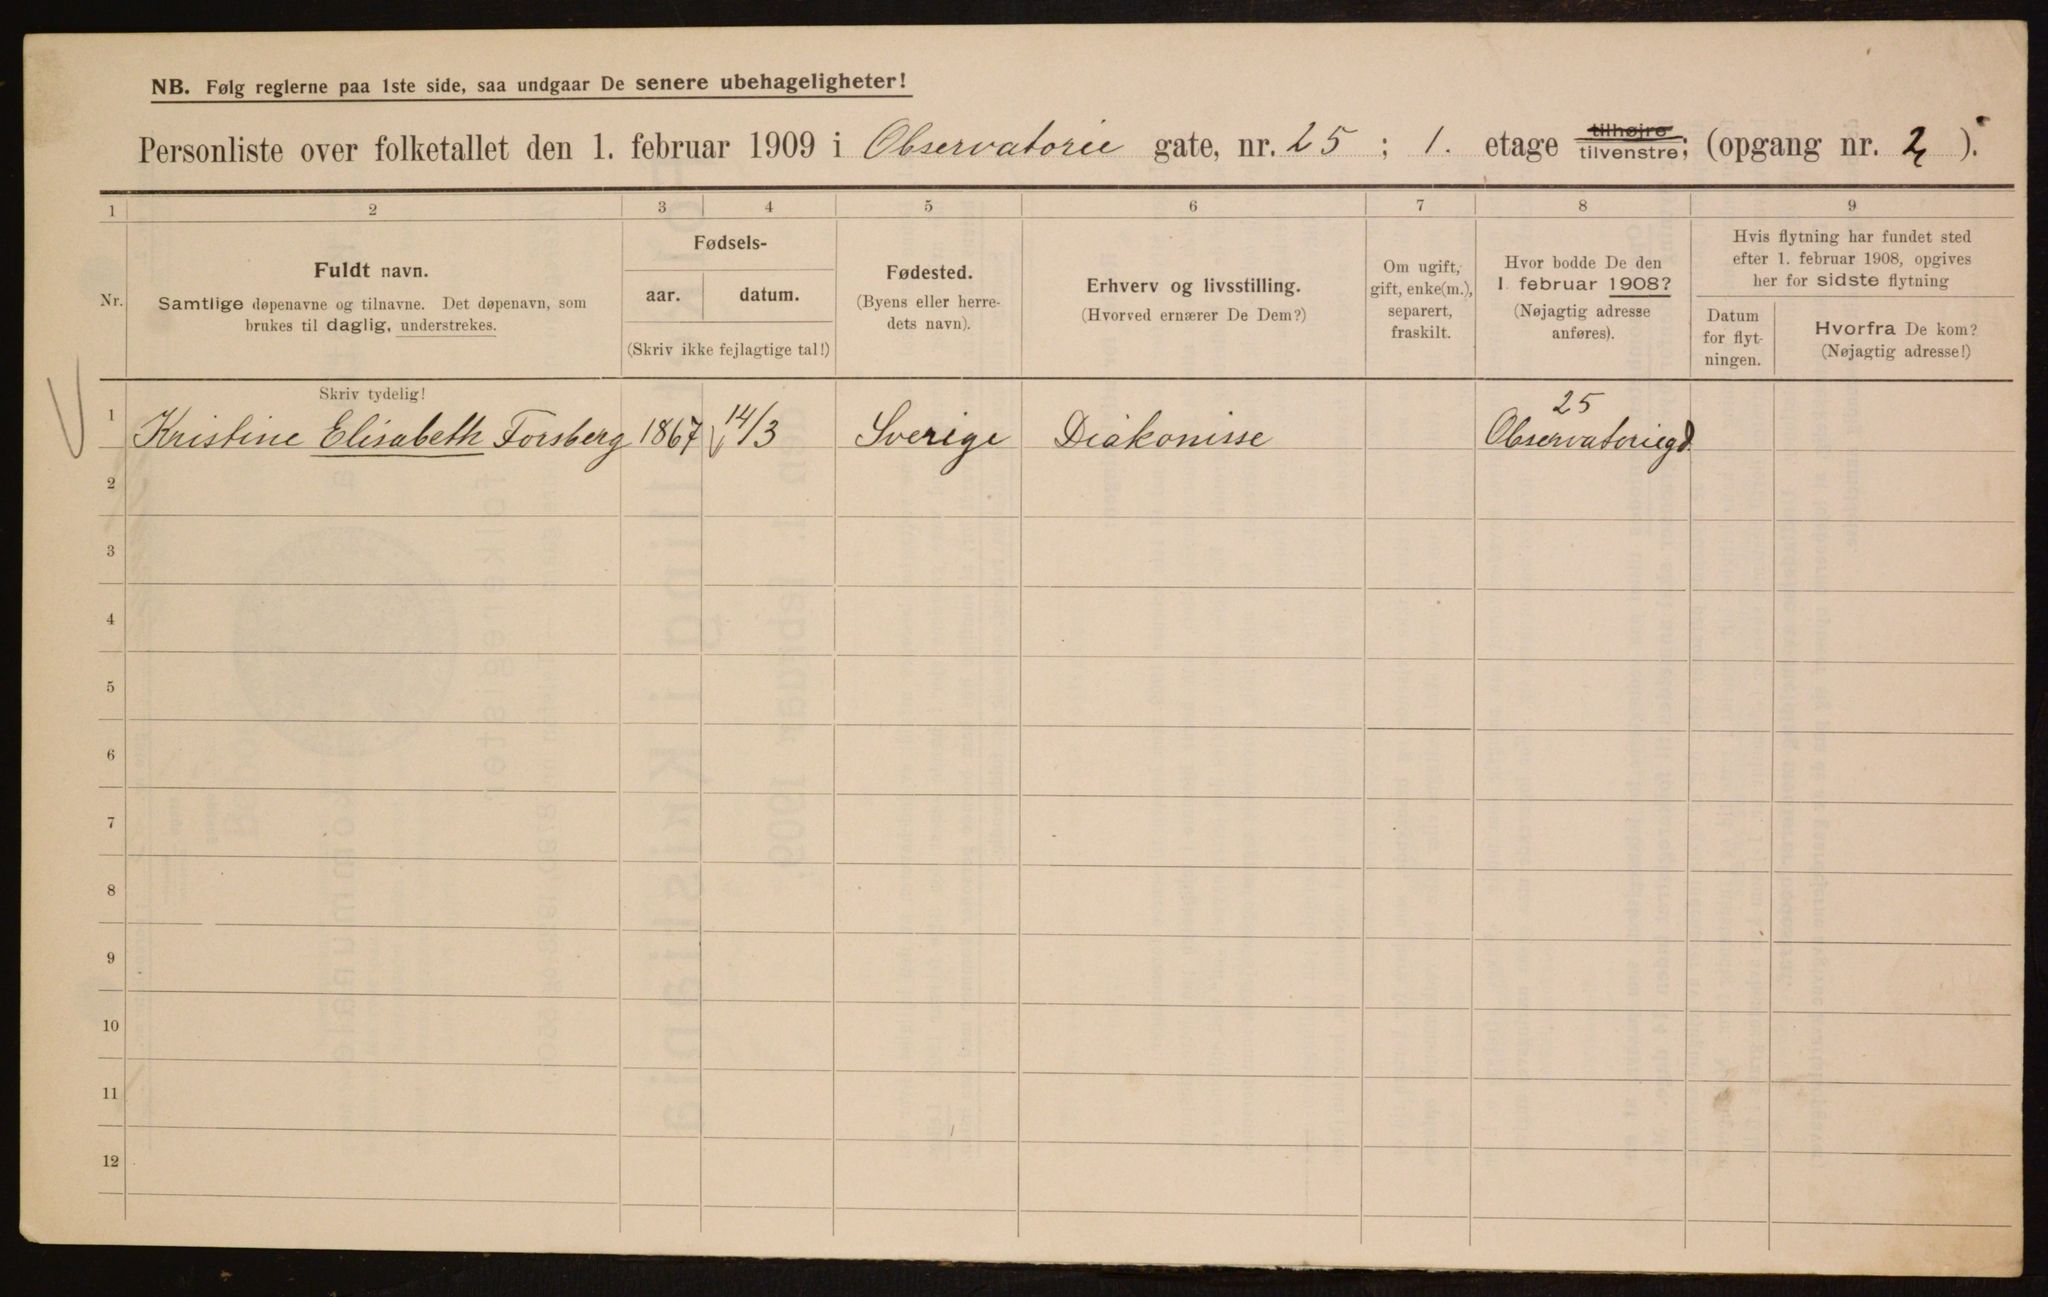 NB. Følg reglerne paa 1ste side, saa undgaar De senere ubehageligheter!
Personliste over folketallet den 1. februar 1909 i Observatorie gate, nr. 25 ; 1. etage tilhøjre tilvenstre; (opgang nr. 2 ).
1 2 3 4 5 6 7 8 9
Nr.
Fuldt navn.
Samtlige døpenavne og tilnavne. Det døpenavn, som
brukes til daglig, understrekes.
Fødsels-
aar. datum.
(Skriv ikke fejlagtige tal!)
Fødested.
(Byens eller herre-
dets navn).
Erhverv og livsstilling.
(Hvorved ernærer De Dem?)
Om ugift,
gift, enke(m.),
separert,
fraskilt.
Hvor bodde De den
1. februar 1908?
(Nøjagtig adresse
anføres).
Hvis flytning har fundet sted
efter 1. februar 1908, opgives
her for sidste flytning
Datum
for flyt-
ningen.
Hvorfra De kom?
(Nøjagtig adresse!)
Skriv tydelig!
25
1 Kristine Elisabeth Forsberg 1867 14/3 Sverige Diakonisse Observatoriegd.
2
3
4
5
6
7
8
9
10
11
12